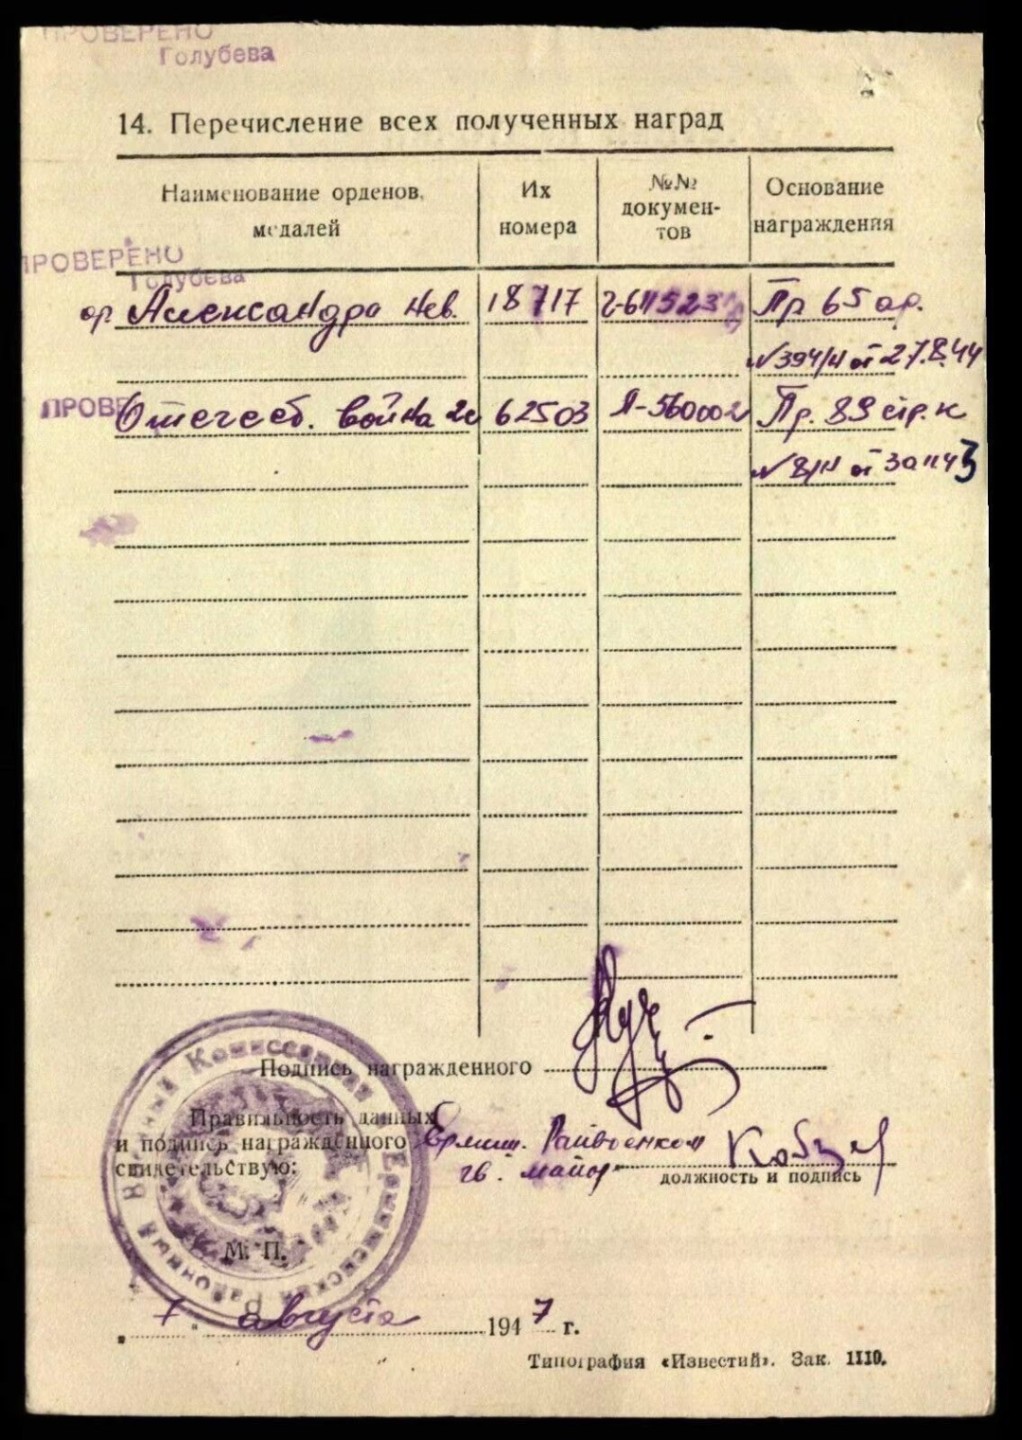 ПРОВЕРЕНО
Голубева
14. Перечисление всех полученных наград
Наименование орденов, медалей
Их номера
№№ документов
Основание награждения
ПРОВЕРЕНО
Голубева
ор Александра Нев. 18717 Г-611523 Пр 65 ар.
№394/н от 27.8.44
ПРОВЕ
Отечест. война 2с 62503 Л-560002 Пр. 89 стр. к
№ 8/н от 30 11 43
Подпись награжденного
Правильность данных
и подпись награжденного Ермиш. Райвоенком
свидетельствую: гв. майор
должность и подпись
М. П.
7 августа 1947 г.
Типография «Известий». Зак. 1110.